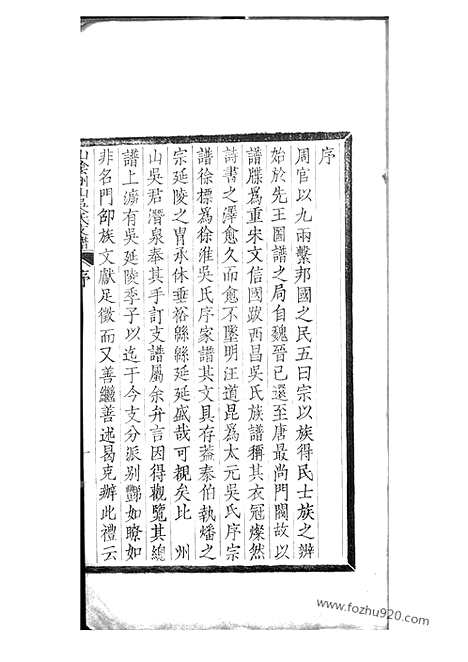 序
周官以九兩繫邦國之民五曰宗以族得民士族之辨
始於先王圖譜之局自魏晉已還至唐最尚門閥故以
譜牒爲重宋文信國跋西昌吳氏族譜稱其衣冠燦然
詩書之澤愈久而愈不墜明汪道昆爲太元吳氏序宗
譜徐標爲徐淮吳氏序家譜其文具存葢泰伯執燔之
宗延陵之冑承休垂裕緜緜延延盛哉可覩矣比 州
山吳君潛泉奉其手訂支譜屬余弁言因得觀覽其總
譜上溯有吳延陵季子以迄于今支分派別酈如瞭如
非名門卲族文獻足徵而又善繼善述曷克辦此禮云
山陰州山吳氏支譜 序
www.fozhu920.com